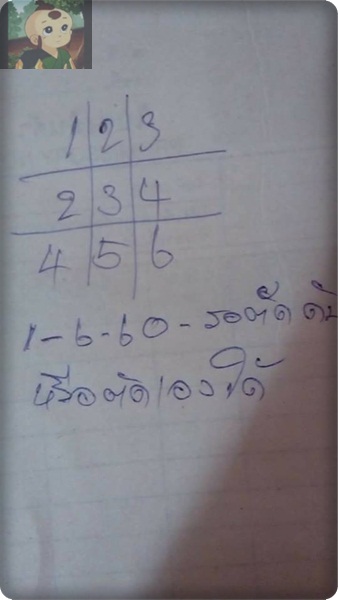 1 2 3
2 3 4
4 5 6
1-6-60-รอตัด
หรือตัดเองได้